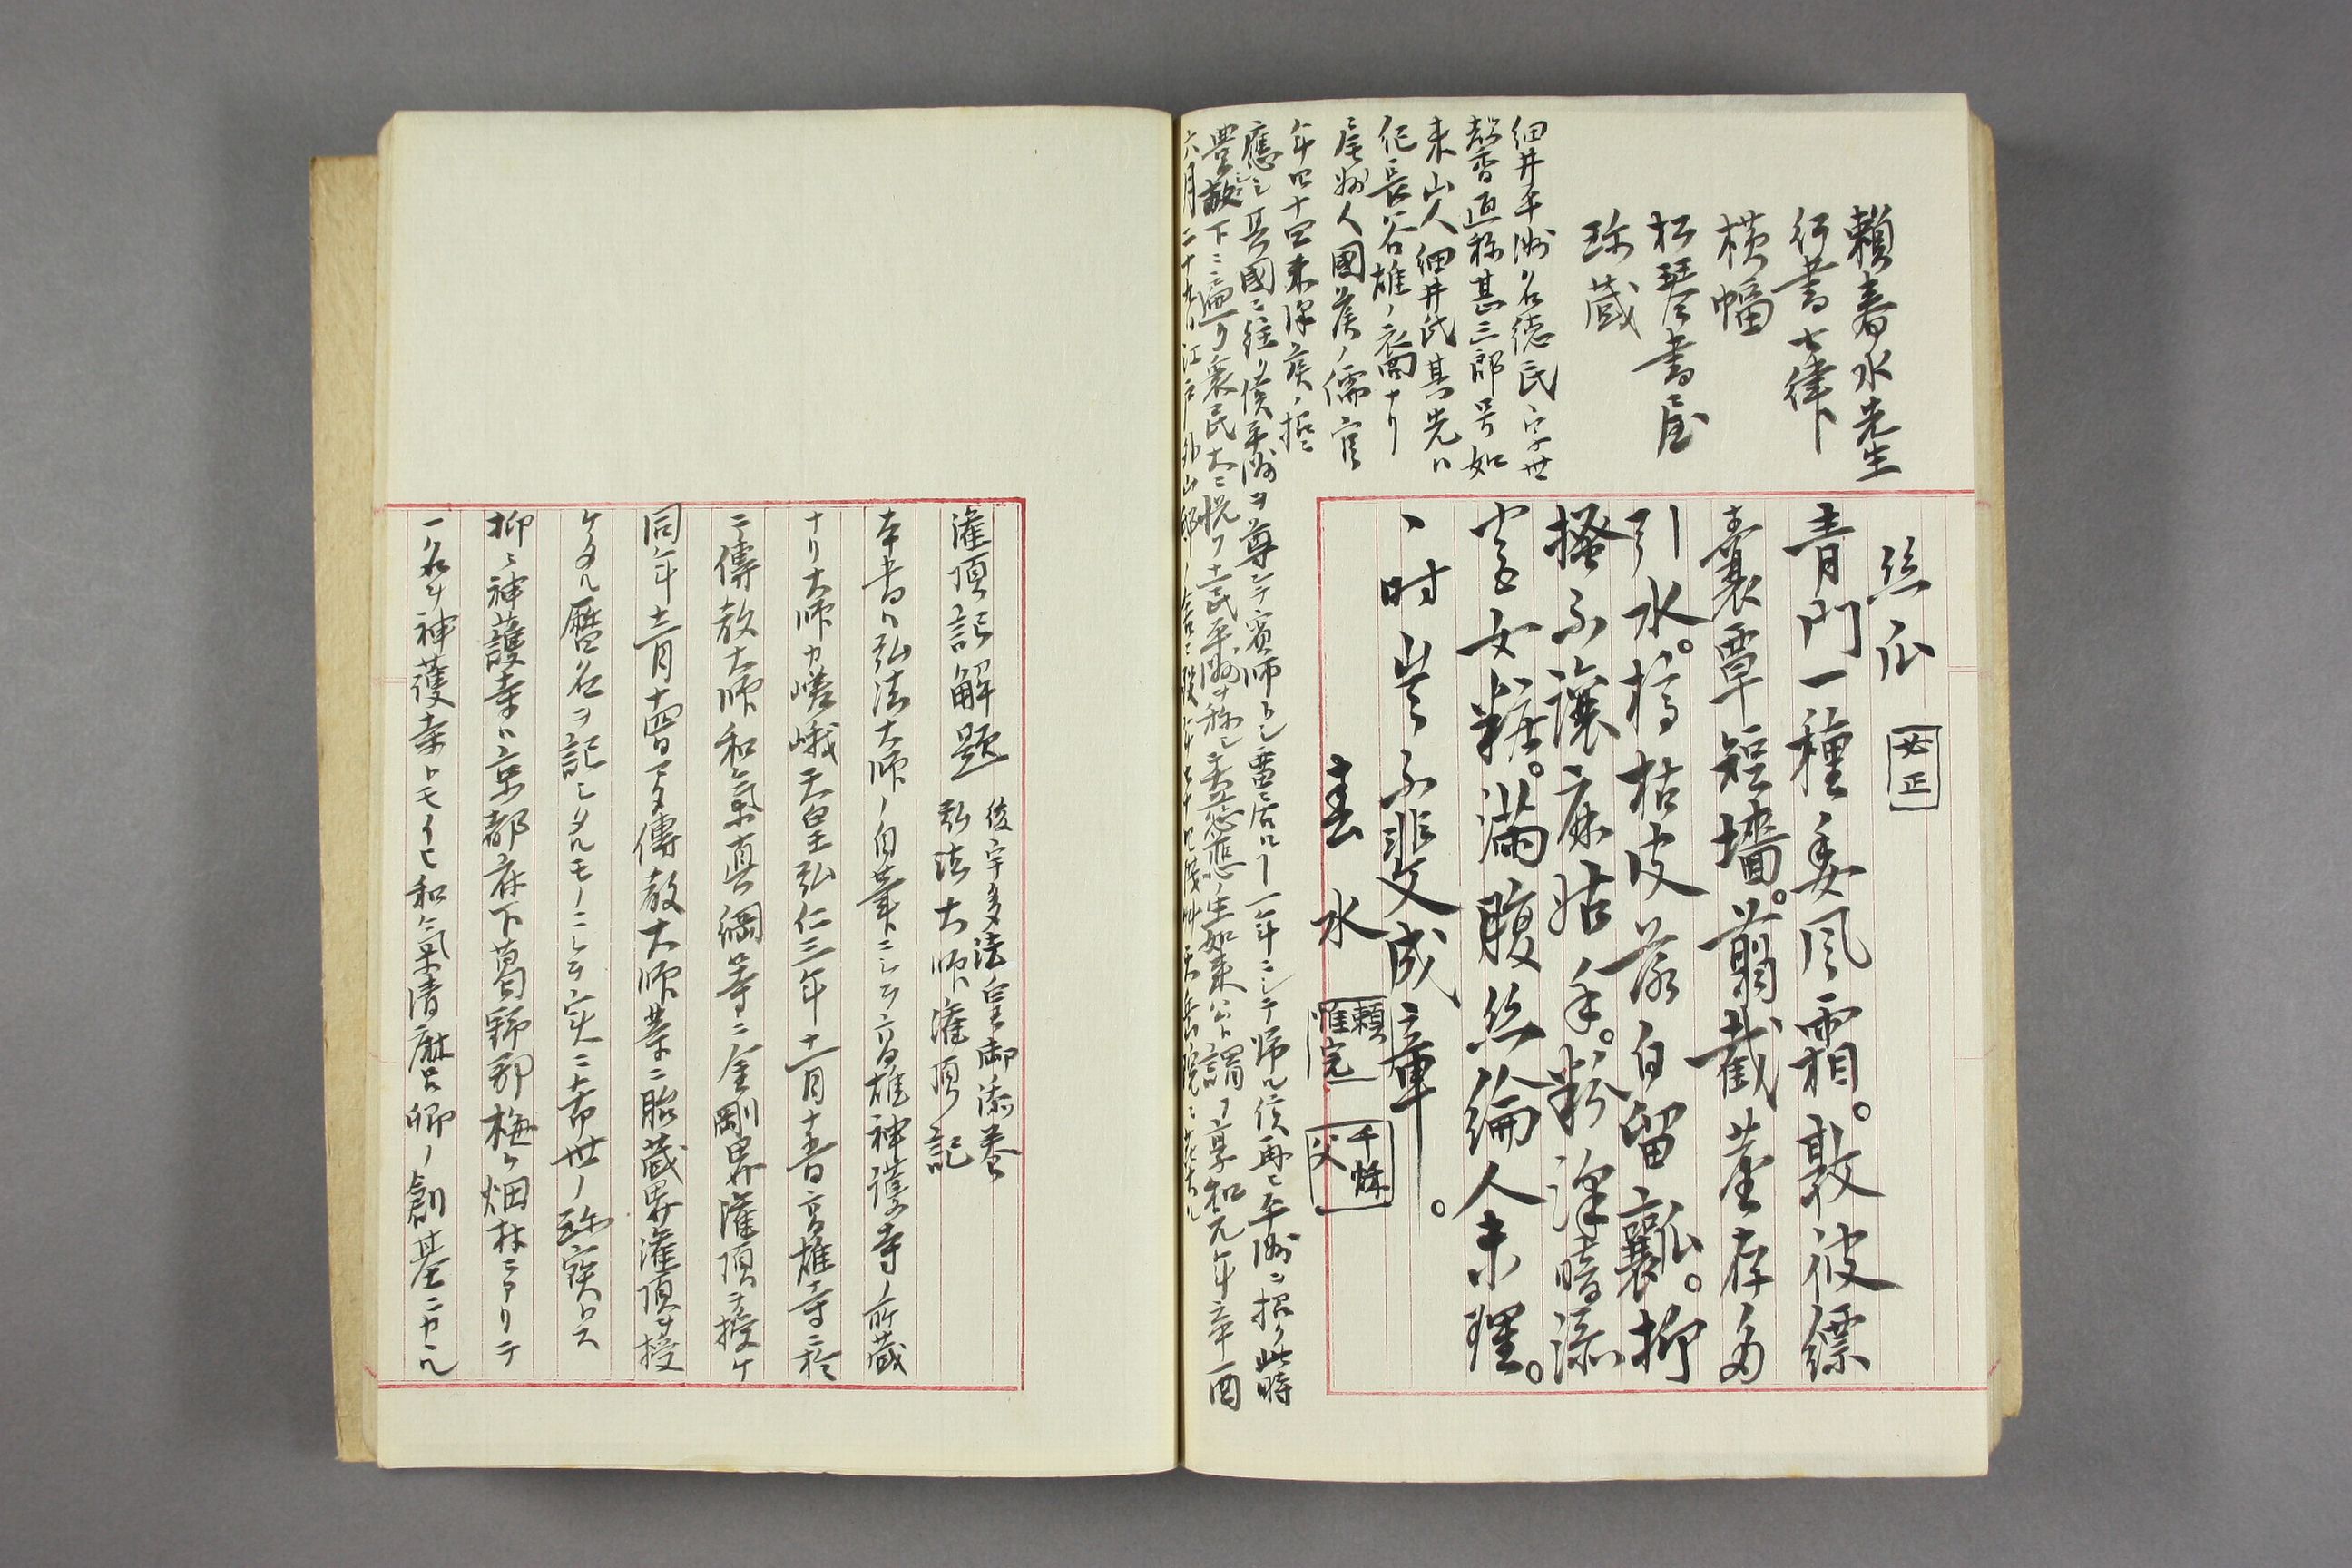 賴春水先生
行書七律
横幅
松琴書屋
珎蔵
絲瓜
必正
青門一種委風霜。敢彼縹
囊覃短墻。翦截莖存多
引水。槁枯皮落自留瓤。抑
搔不讓麻姑手。粉澤暗添
室女糚。滿腹絲綸人未理。
丶时豈不斐成章。
春水
賴惟完
千秋父
細井平洲名徳民字世
馨通称甚三郎号如
来山人細井氏其先ハ
紀長谷雄ノ裔ナリ
尾州人國侯ノ儒官
年四十四米澤侯ノ招ニ
應シ其國ニ往ク侯平洲ヲ尊シテ賓師トシ留居一年ニシテ帰ル侯再ヒ平洲ヲ招ク此時
六月二十九日江戸外山邸ノ
灌頂記解題
後宇多法皇御添巻
弘法大師灌頂記
本書ハ弘法大師ノ自筆ニシテ高雄神護寺ノ所蔵
ナリ大師カ嵯峨天皇弘仁三年十一月十五日高雄寺ニ於
テ傳教大師和氣真綱等ニ金剛界灌頂ヲ授ケ
同年十二月十四日マタ傳教大師等ニ胎蔵界灌頂ヲ授
ケタル暦名ヲ記シタルモノニシテ実ニ希世ノ珎宝トス
抑ミ神護寺ハ京都府下葛野郡梅ケ畑村ニアリテ
一名ヲ神護寺トモイヒ和氣清麿卿ノ創基ニカヽル